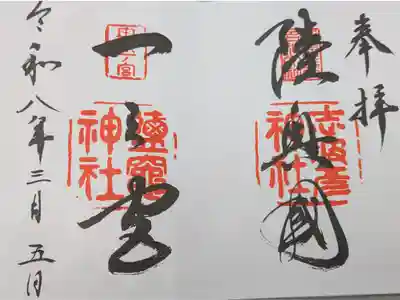 奉拝
陸奥國
志波彦
神社
一之宮
鹽竈
神社
令和八年三月五日